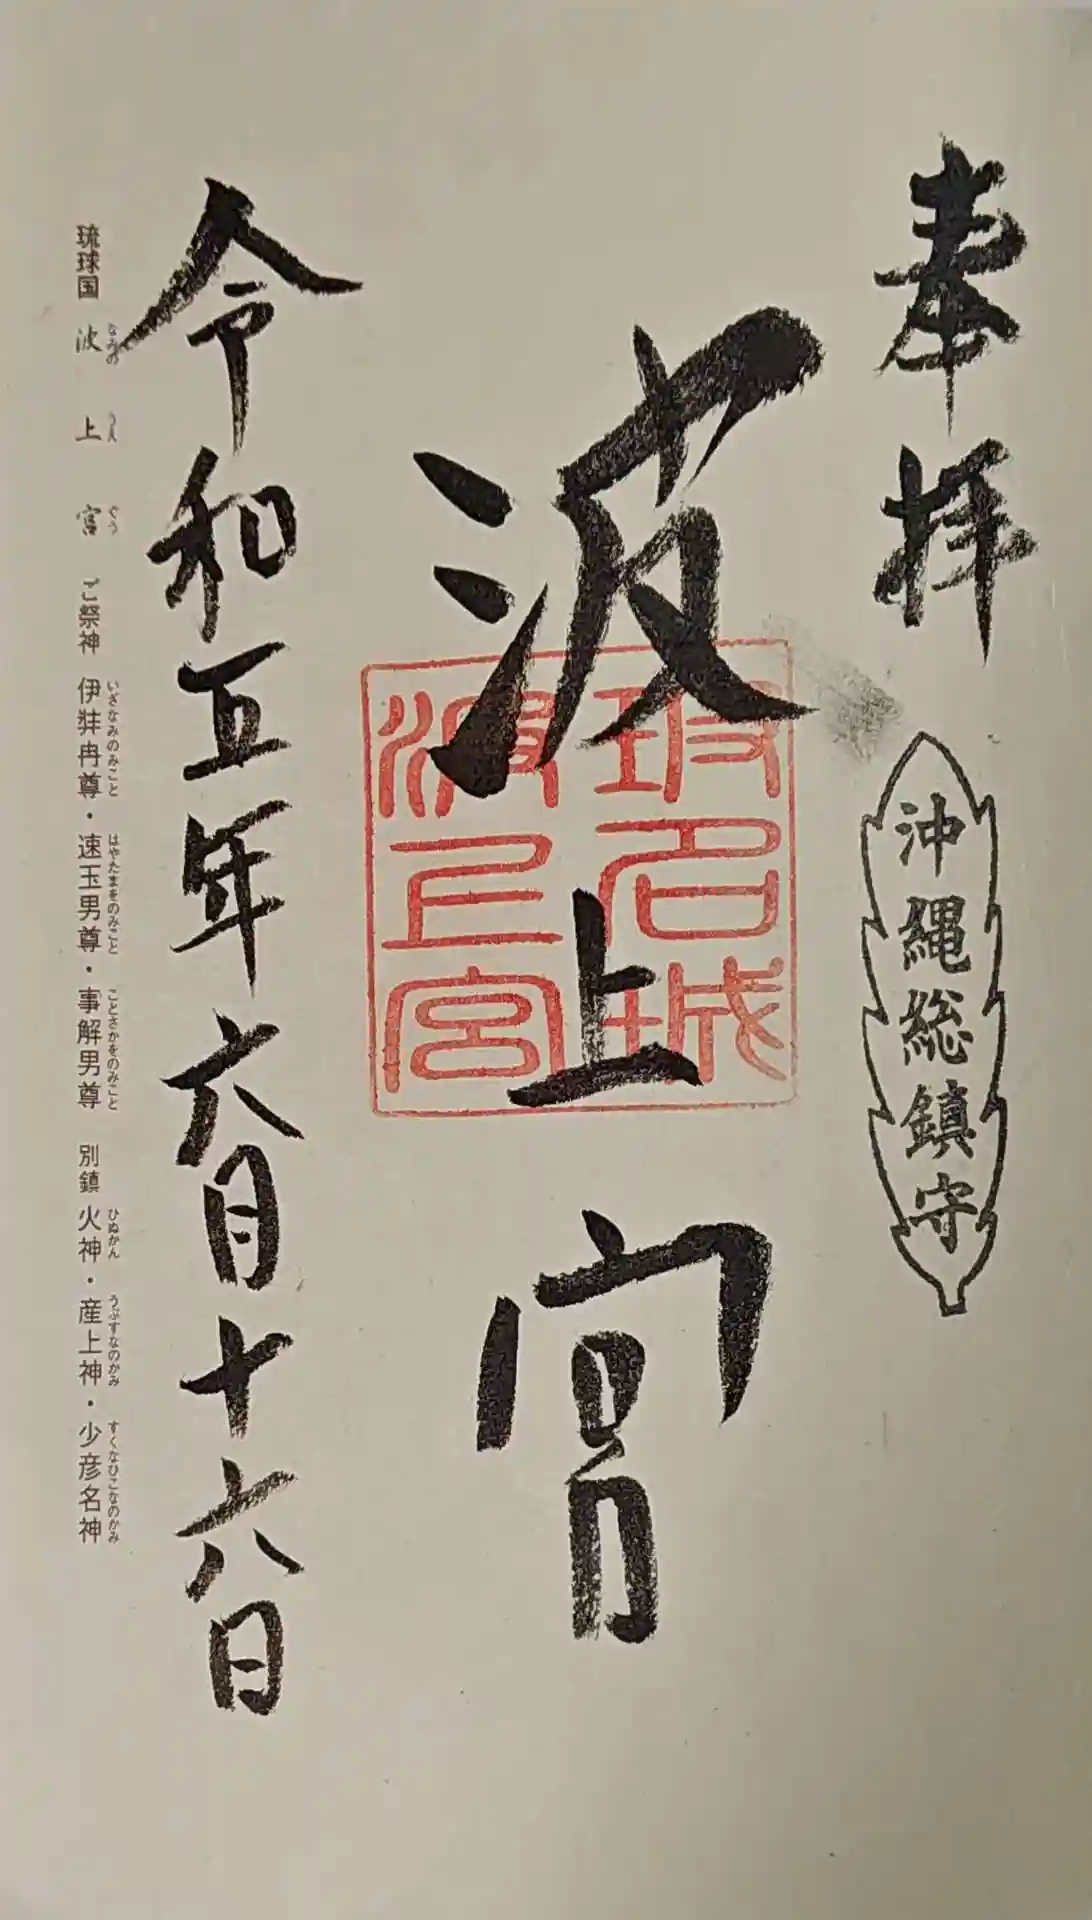 奉拝
沖縄総鎮守
波上宮
玻名城
波上宮
令和五年六月十六日
琉球国 波上宮 ご祭神 伊弉冉尊・速玉男尊・事解男尊 別鎮 火神・産土神・少彦名神
なみの うえ ぐう いざなみのみこと はやたまをのみこと ことさかをのみこと ひぬかん うぶすなのかみ すくなひこなのかみ